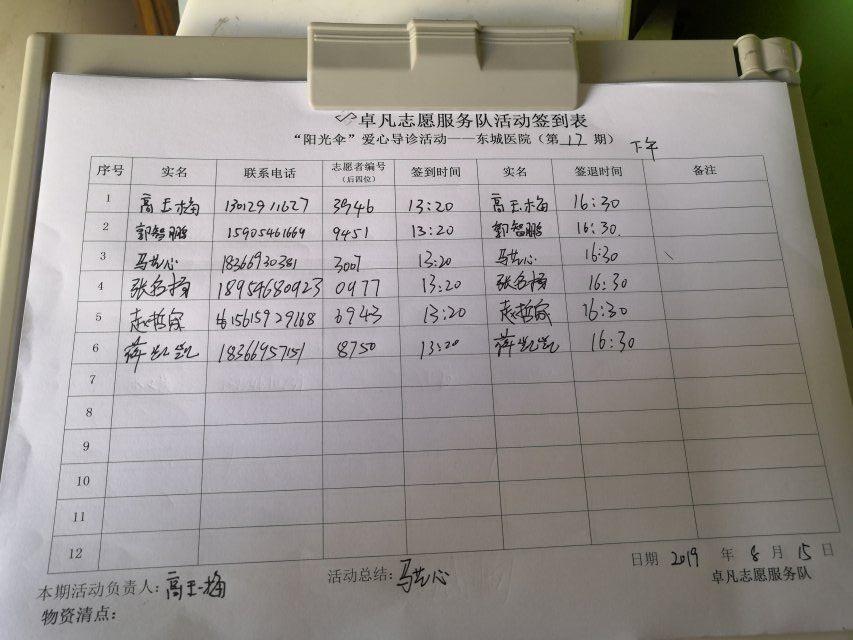 卓凡志愿服务队活动签到表
“阳光伞”爱心导诊活动——东城医院（第 12 期）
下午
序号 实名 联系电话 志愿者编号（后四位） 签到时间 实名 签退时间 备注
1 高玉梅 13012911627 3946 13:20 高玉梅 16:30
2 郭智鹏 15905461669 9451 13:20 郭智鹏 16:30.
3 马艺心 18366930381 3007 13:20 马艺心 16:30
4 张名扬 18954680923 0977 13:20 张名扬 16:30
5 赵哲 15615929168 6943 13:20 赵哲 16:30
6 蒋凯凯 18366957151 8750 13:20 蒋凯凯 16:30
7
8
9
10
11
12
日期 2019 年 8 月 15 日
本期活动负责人：高玉梅 活动总结：马艺心 卓凡志愿服务队
物资清点：